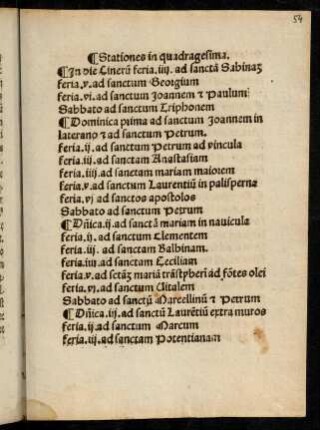 54
¶Stationes in quadragesima.
¶In die Cinerũ feria.iiij. ad sanctã Sabinaꝫ
feria.v. ad sanctum Georgium
feria.vi. ad sanctum Joannem ⁊ Paulum
Sabbato ad sanctum Triphonem
¶Dominica prima ad sanctum Joannem in
laterano ⁊ ad sanctum Petrum.
feria.ij. ad sanctum Petrum ad vincula
feria.iij. ad sanctam Anastasiam
feria.iiij. ad sanctam mariam maiorem
feria.v. ad sanctum Laurentiũ in palisperna
feria.vj ad sanctos apostolos
Sabbato ad sanctum Petrum
¶Dñica.ij. ad sanctã mariam in nauicula
feria.ij. ad sanctum Clementem
feria.iij. ad sanctam Balbinam.
feria.iiij ad sanctam Ceciliam
feria.v. ad sctãꝫ mariã trãstyberĩ ad fõtes olei
feria.vj. ad sanctum Uitalem
Sabbato ad sanctũ Marcellinũ ⁊ Petrum
¶Dñica.iij. ad sanctũ Laurẽtiũ extra muros
feria.ij. ad sanctum Marcum
feria.iij. ad sanctam Potentianam